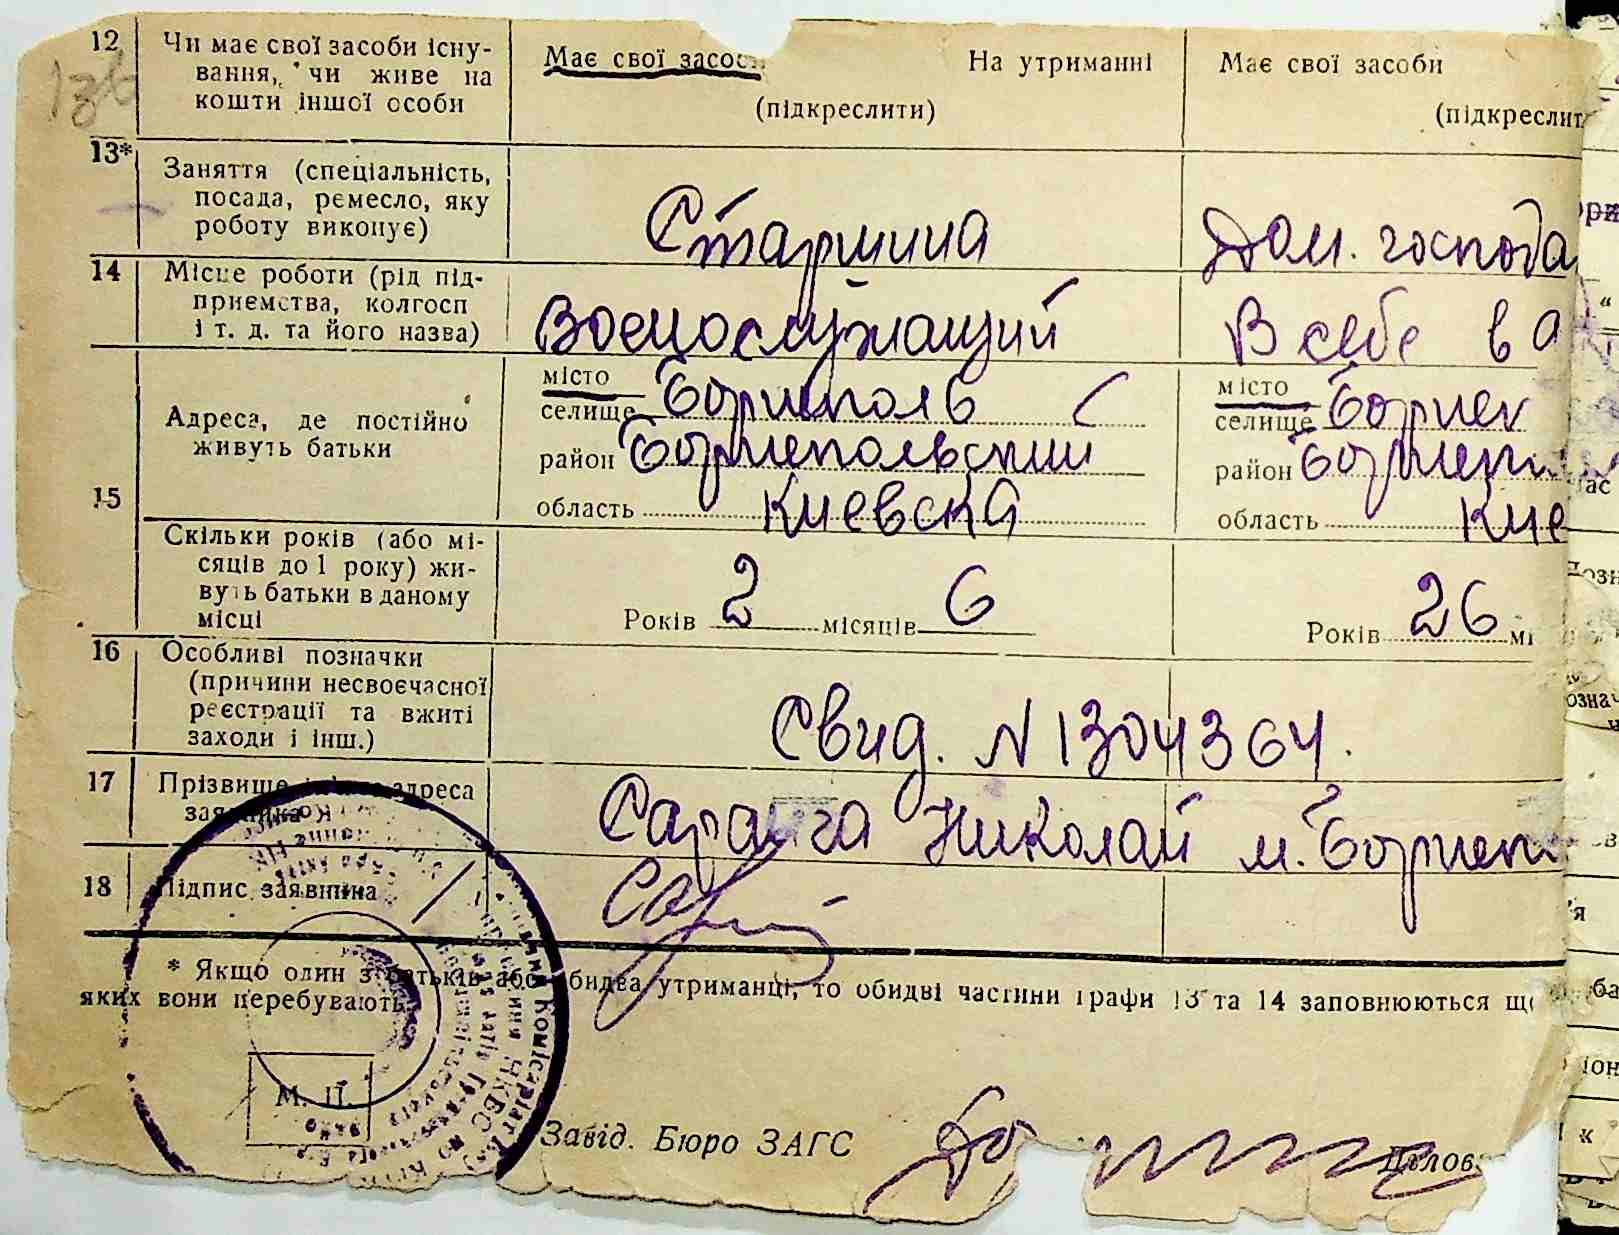 12 Чи має свої засоби існу-
вання, чи живе на
кошти іншої особи
Має свої засоби На утриманні Має свої засоби
(підкреслити) (підкреслит
13* Заняття (спеціальність,
посада, ремесло, яку
роботу виконує)
Старшина Дом. господа
14 Місце роботи (рід під-
приємства, колгосп
і т. д. та його назва)
Военослужащий В себе в
15 Адреса, де постійно
живуть батьки
місто
селище Борисполь
район Бориспольский
область Киевска
місто
селище Борисп
район Борисп
область Кие
Скільки років (або мі-
сяців до 1 року) жи-
вуть батьки в даному
місці
Років 2 місяців 6 Років 26 мі
16 Особливі позначки
(причини несвоєчасної
реєстрації та вжиті
заходи і інш.)
Свид. N 1304364.
17 Прізвище адреса
заявника
Николай м. Борисп
18 Підпис заявника
* Якщо один з батьків або обидва утриманці, то обидві частини графи 13 та 14 заповнюються що
яких вони перебувають
М. П.
Завід. Бюро ЗАГС Ділов